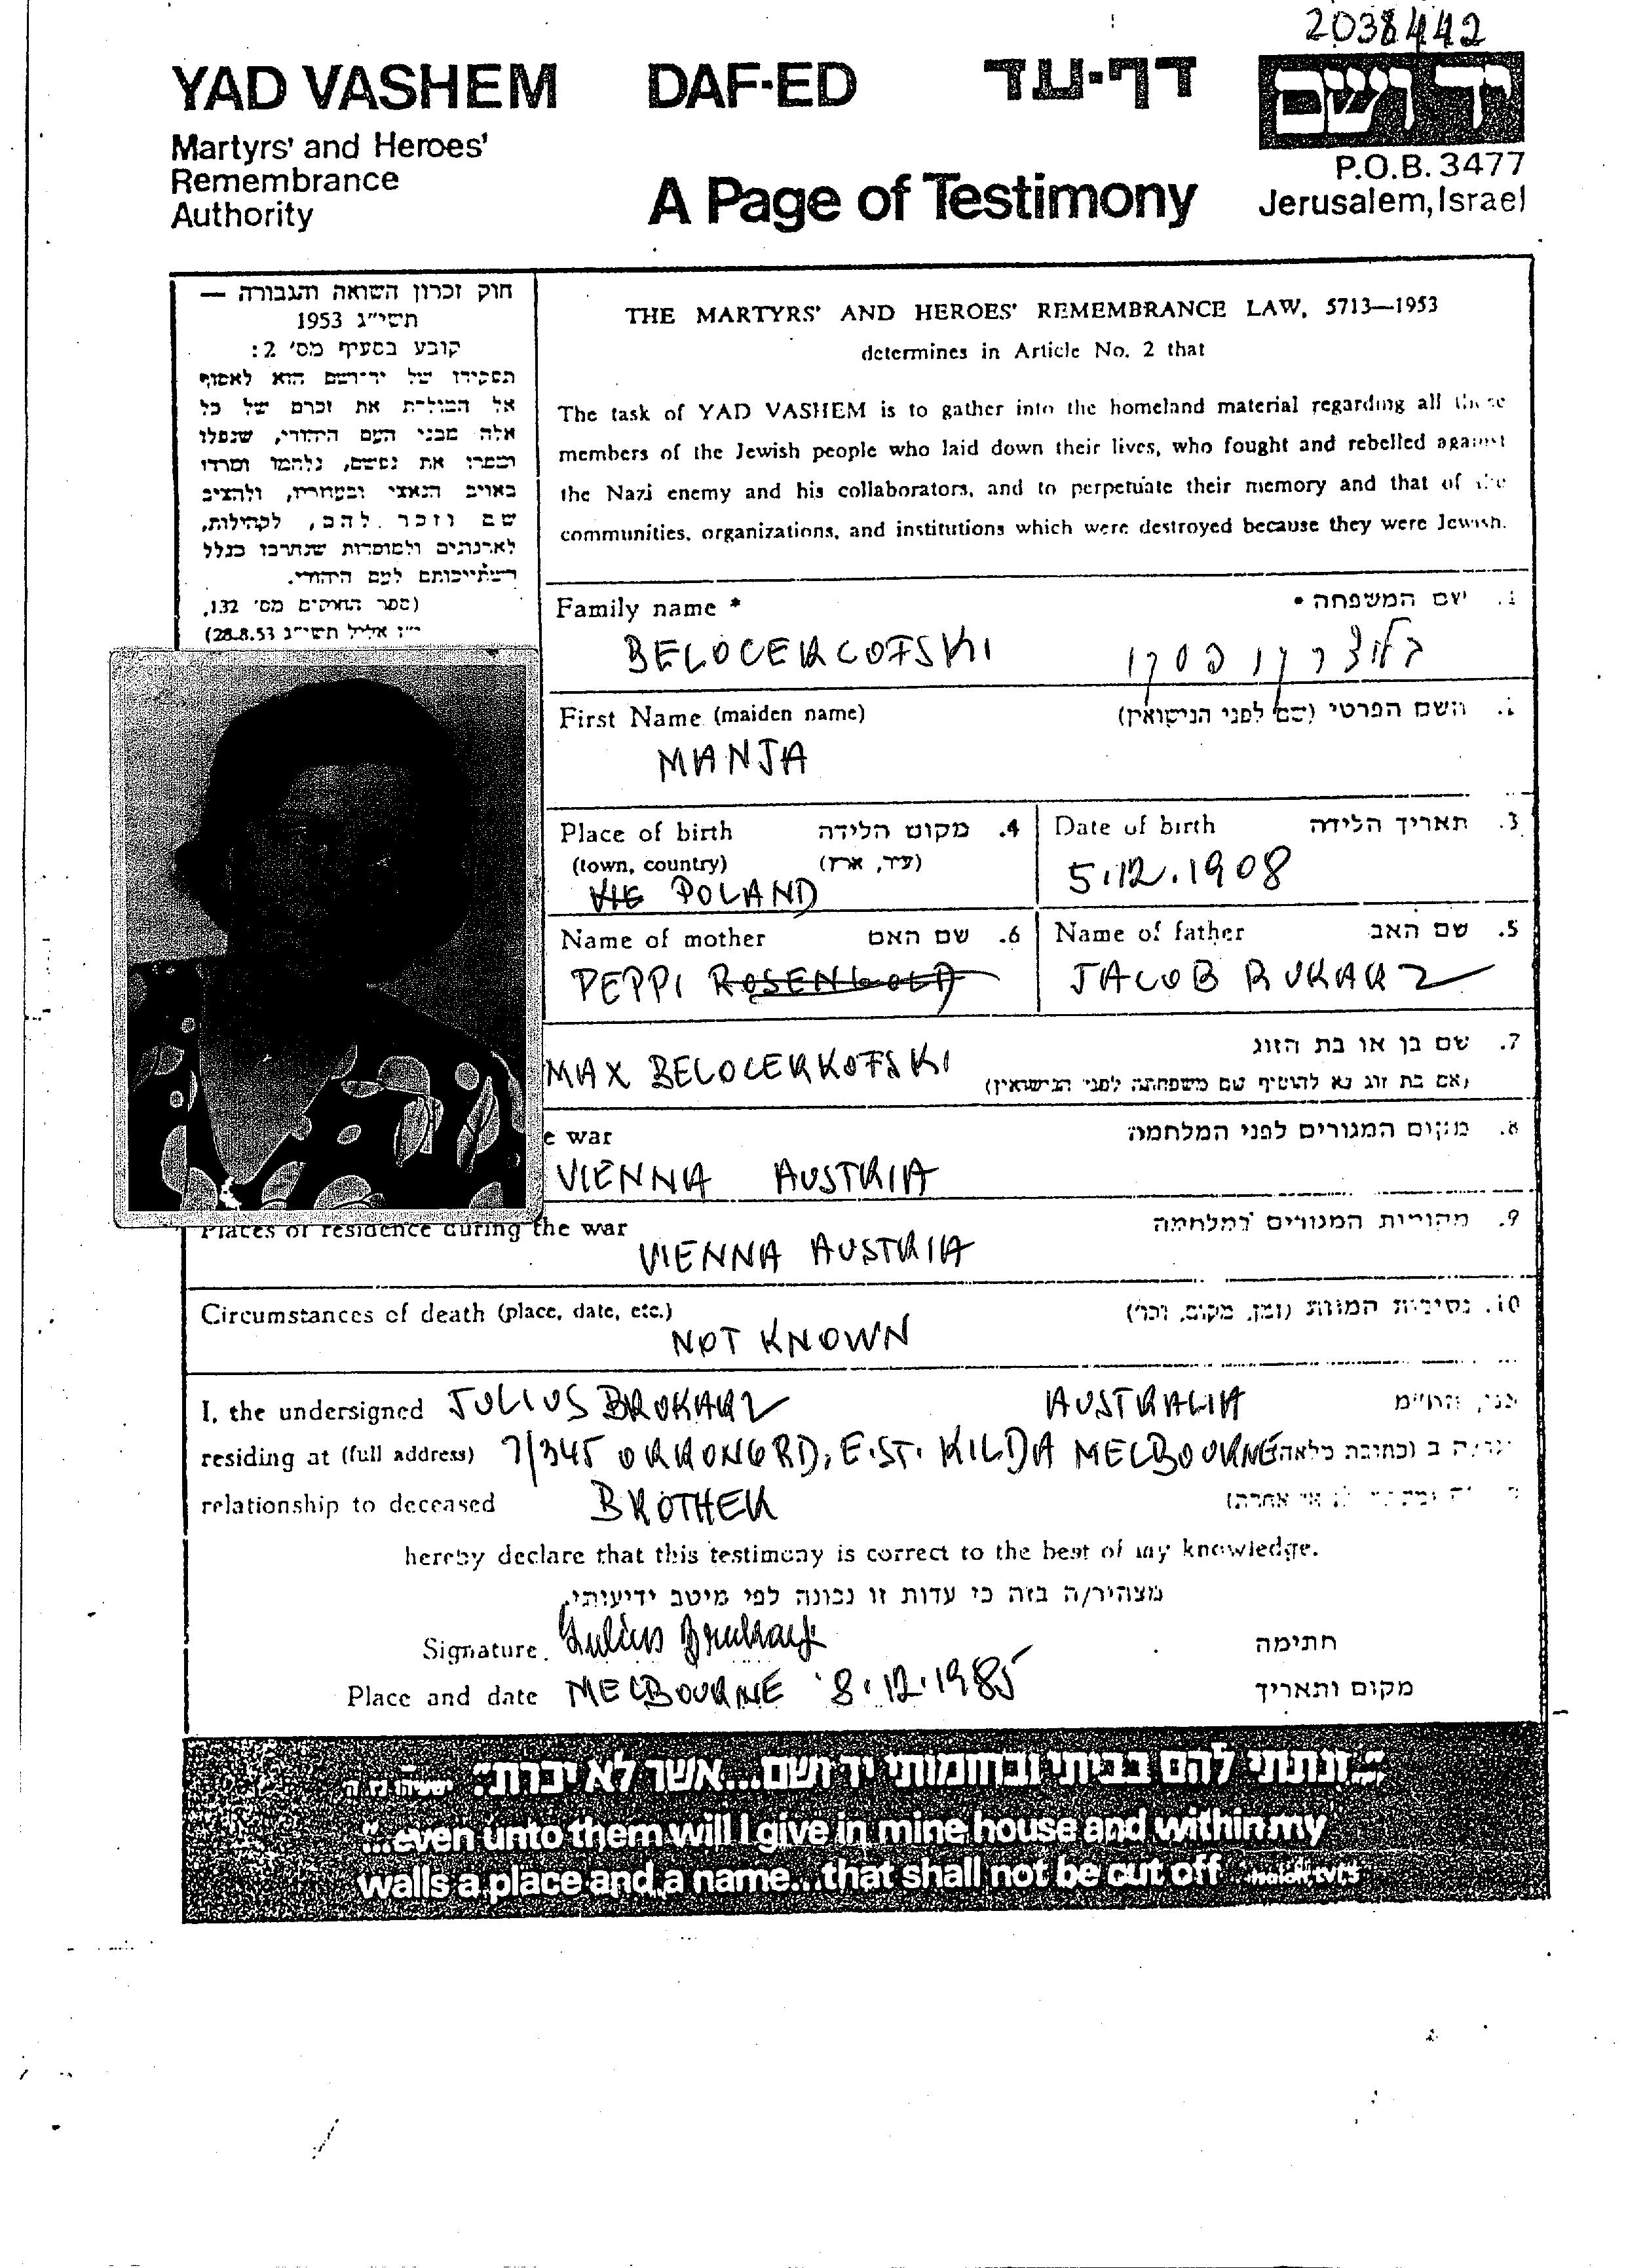 2038442
YAD VASHEM DAF-ED דף-עד
יד ושם
Martyrs' and Heroes'
Remembrance
Authority
A Page of Testimony
P.O.B. 3477
Jerusalem, Israel
חוק זכרון השואה והגבורה —
תשי"ג 1953
קובע בסעיף מס' 2:
תפקידו של יד-ושם הוא לאסוף
אל המולדת את זכרם של כל
אלה מבני העם היהודי, שנפלו
ומסרו את נפשם, נלחמו ומרדו
באויב הנאצי ובעוזריו, ולהציב
שם וזכר להם, לקהילות,
לארגונים ולמוסדות שנחרבו בגלל
השתייכותם לעם היהודי.
(ספר החוקים מס' 132,
י"ז אלול תשי"ג 28.8.53)
THE MARTYRS' AND HEROES' REMEMBRANCE LAW, 5713—1953
determines in Article No. 2 that
The task of YAD VASHEM is to gather into the homeland material regarding all those
members of the Jewish people who laid down their lives, who fought and rebelled against
the Nazi enemy and his collaborators, and to perpetuate their memory and that of the
communities, organizations, and institutions which were destroyed because they were Jewish.
Family name * 1. שם המשפחה •
BELOCERCOFSKI בלוצרקופסקי
First Name (maiden name) השם הפרטי (שם לפני הנישואין)
MANJA
Place of birth 4. מקום הלידה
(town, country) (עיר, ארץ)
VIE POLAND
Date of birth 3. תאריך הלידה
5.12.1908
Name of mother 6. שם האם
PEPPI ROSENGOLD
Name of father 5. שם האב
JACOB BUKARZ
7. שם בן או בת הזוג
MAX BELOCERKOFSKI (אם בת זוג נא להוסיף שם משפחתה לפני הנישואין)
e war 8. מקום המגורים לפני המלחמה
VIENNA AUSTRIA
Places of residence during the war 9. מקומות המגורים במלחמה
VIENNA AUSTRIA
Circumstances of death (place, date, etc.) 10. נסיבות המוות (זמן, מקום, וכו')
NOT KNOWN
I, the undersigned JULIUS BRUKARZ AUSTRALIA אני, הח"מ
residing at (full address) 7/345 ORRONG RD, E.ST. KILDA MELBOURNE
relationship to deceased BROTHER
hereby declare that this testimony is correct to the best of my knowledge.
מצהיר/ה בזה כי עדות זו נכונה לפי מיטב ידיעותי.
Signature Julius Brukarz חתימה
Place and date MELBOURNE 8.12.1985 מקום ותאריך
"...ונתתי להם בביתי ובחומותי יד ושם...אשר לא יכרת" ישעיה נו, ה
"...even unto them will I give in mine house and within my
walls a place and a name...that shall not be cut off"